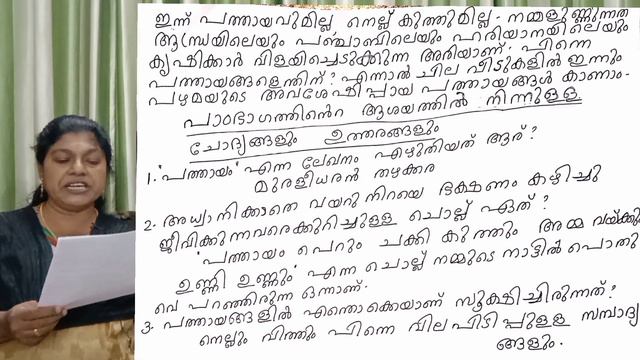 ഇന്ന് പത്തായവുമില്ല, നെല്ല് കുത്തുമില്ല. നമ്മളുണ്ണുന്നത്
ആന്ധ്രയിലെയും പഞ്ചാബിലെയും ഹരിയാനയിലെയും
കൃഷിക്കാർ വിളയിച്ചെടുക്കുന്ന അരിയാണ്. പിന്നെ
പത്തായങ്ങളെന്തിന്? എന്നാൽ ചില വീടുകളിൽ ഇന്നും
പഴമയുടെ അവശേഷിപ്പായ പത്തായങ്ങൾ കാണാം.
പാഠഭാഗത്തിൻെറ ആശയത്തിൽ നിന്നുള്ള
ചോദ്യങ്ങളും ഉത്തരങ്ങളും
1. 'പത്തായം' എന്ന ലേഖനം എഴുതിയത് ആര്?
മുരളീധരൻ തഴക്കര
2. അധ്വാനിക്കാതെ വയറുനിറയെ ഭക്ഷണം കഴിച്ചു
ജീവിക്കുന്നവരെക്കുറിച്ചുള്ള ചൊല്ല് ഏത്?
'പത്തായം പെറും ചക്കി കുത്തും അമ്മ വയ്ക്കും
ഉണ്ണി ഉണ്ണും' എന്ന ചൊല്ല് നമ്മുടെ നാട്ടിൽ പൊതു
വെ പറഞ്ഞിരുന്ന ഒന്നാണ്.
3. പത്തായങ്ങളിൽ എന്തൊക്കെയാണ് സൂക്ഷിച്ചിരുന്നത്?
നെല്ലും വിത്തും പിന്നെ വിലപിടിപ്പുള്ള സമ്പാദ്യ
ങ്ങളും.